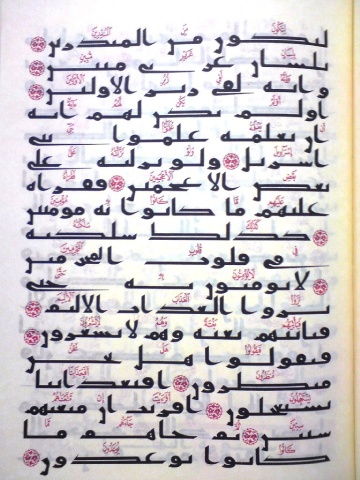 لتكون من المنذرين
بلسان عربي مبين
وانه لفي زبر الاولين
اولم يكن لهم اية
ان يعلمه علموا بني
اسريل ولو نزلنه على
بعض الاعجمين فقراه
عليهم ما كانوا به مومنين
كذلك سلكنه
في قلوب المجرمين
لا يومنون به حتى
يروا العذاب الاليم
فياتيهم بغتة وهم لا يشعرون
فيقولوا هل نحن
منظرون افبعذابنا
يستعجلون افريت ان متعنهم
سنين ثم جاهم ما
كانوا يوعدون